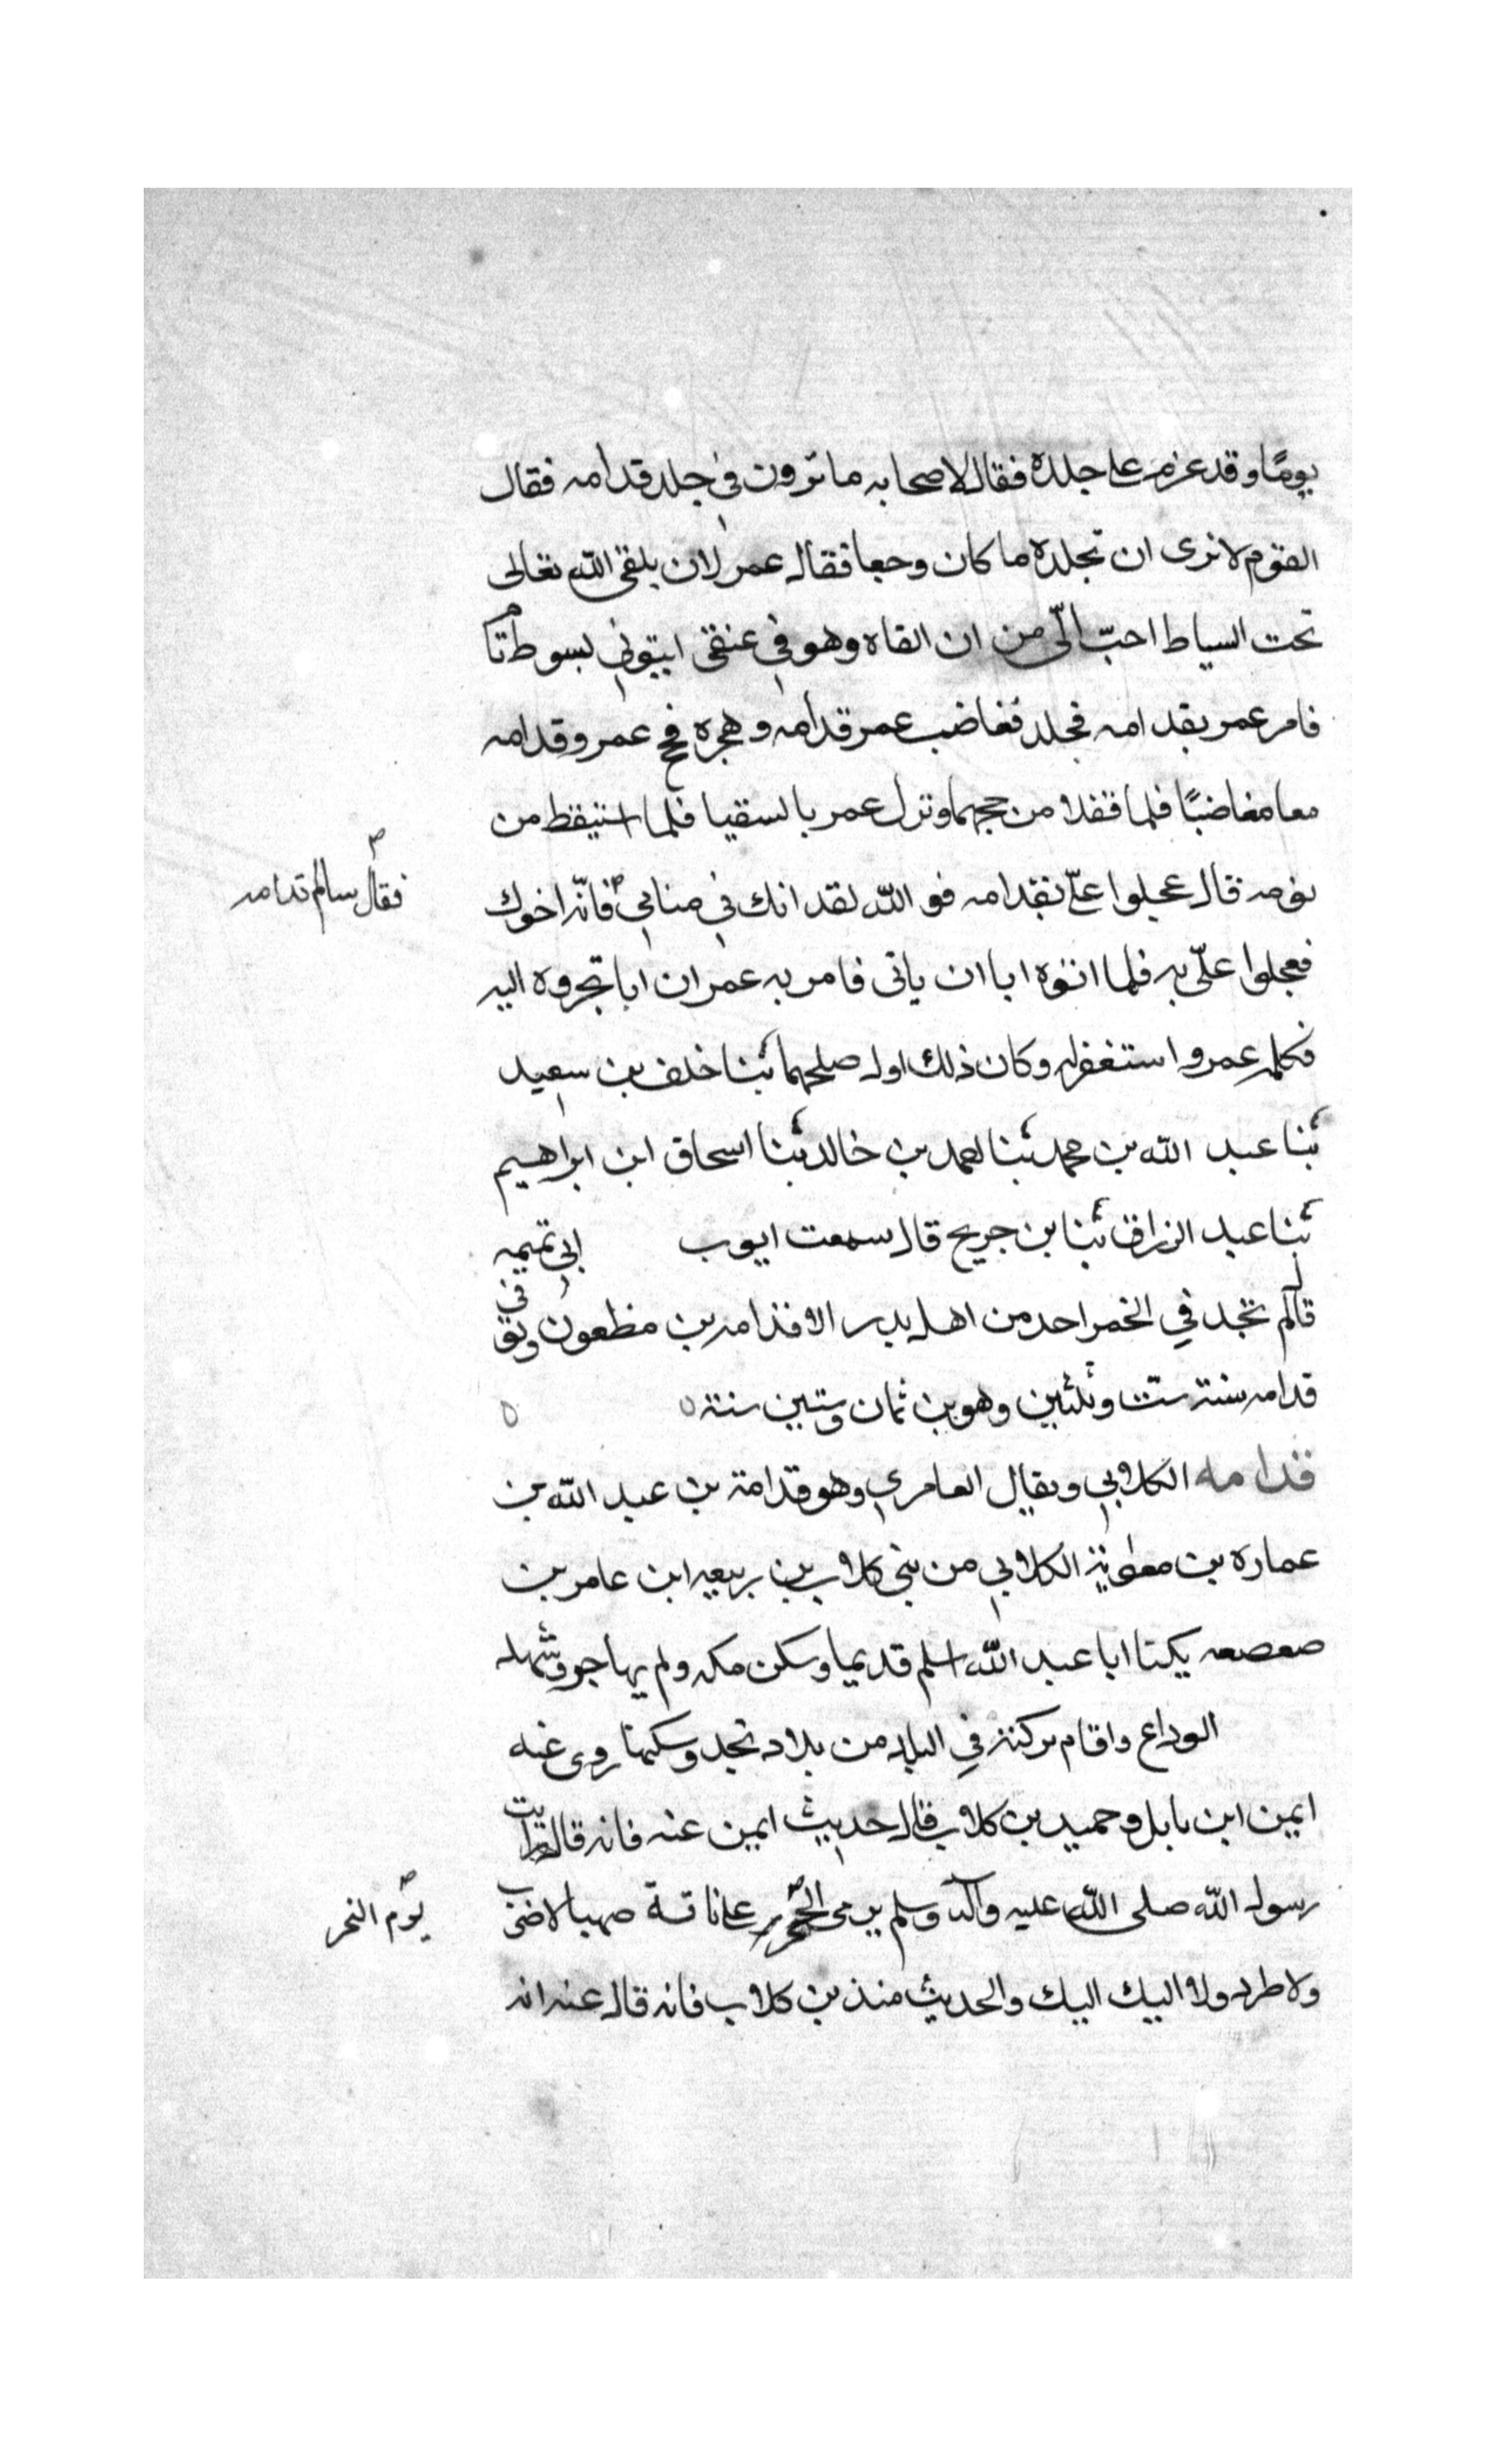 يومًا وقد عزم على جلده فقال لاصحابه ما ترون في جلد قدامه فقال
القوم لا نرى ان تجلده ما كان وجعا فقال عمر لان يلقى الله تعالى
تحت السياط احبّ الّى من ان القاه وهو في عنقي ايتوني بسوط تام
فامر عمر بقدامه فجلد فغاضب عمر قدامه وهجره فحج عمر وقدامه
معا مغاضبًا فلما قفلا من حجهما ونزل عمر بالسقيا فلما استيقظ من
نومه قال عجلوا علّى بقدامه فو الله لقد انك في منامي فانّه اخوك
فقال سالم قدامه
فعجلوا علّى به فلما اتوه ابا ان ياتى فامر به عمر ان ابا تجروه اليه
فكلمه عمر واستغفر له وكان ذلك اول صلحهما ثنا خلف بن سعيد
ثنا عبد الله بن محمد ثنا احمد بن خالد ثنا اسحاق ابن ابراهيم
ثنا عبد الرزاق ثنا بن جريح قال سمعت ايوب ابي تميمه
قال لم تجد في الخمر احد من اهل بدر الا قدامه بن مظعون وتوفى
قدامه سنة ست وثلثين وهو بن ثمان وستين سنة
قدامه الكلابي ويقال العامري وهو قدامة بن عبد الله بن
عماره بن معوية الكلابي من بني كلاب بن ربيعه ابن عامر بن
صعصعه يكنا ابا عبد الله اسلم قديما وسكن مكه ولم يهاجر وشهد
الوداع واقام بركنة في البلد من بلاد نجد وسكنها روى عنه
ايمن ابن نابل وحميد بن كلاب قال حديث ايمن عنه فانه قال رايت
رسول الله صلى الله عليه وآله وسلم يرمي الجمر على ناقة صهبا لا ضرب
يوم النحر
ولا طرد ولا اليك اليك والحديث منذ بن كلاب فانه قال عنه انه